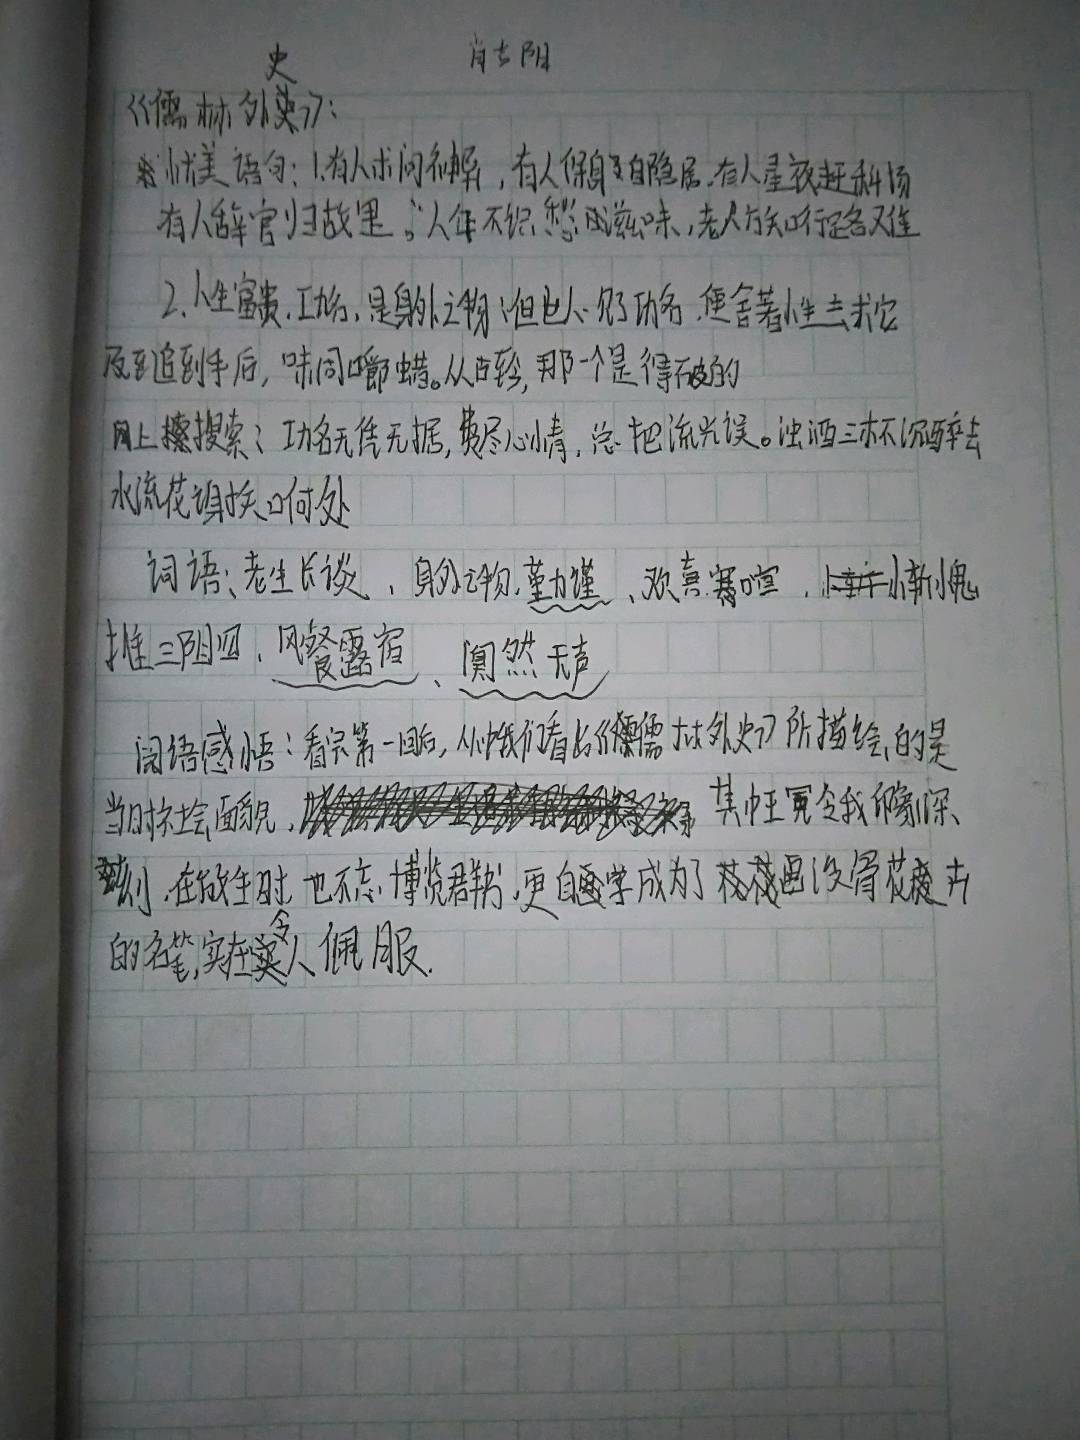 史
《儒林外史》:
优美语句:1.有人求问和解,有人保身自隐居.有人星夜赶科场
有人辞官归故里。人年不识愁滋味,老人方知行足各又佳
2.人生富贵.功名,是身外之物;但世人一见了功名.便舍着性去求它
及到手后,味同嚼蜡。从古轻,那一个是得破的
网上搜索;功名无凭无据,费尽心情,总把流光误。浊酒三杯沉醉去
水流花谢知何处
词语:老生长谈、身外之物.勤谨、欢喜.寒喧.
推三阻四、风餐露宿、阒然无声
阅语感悟:看完第一回后,从中我们看出《儒林外史》所描绘的是
当时社会面貌,其中王冕令我印象深
刻.在放牛时.也不忘博览群书.更自画学成为了画没骨花卉
的名笔,实在令人佩服.